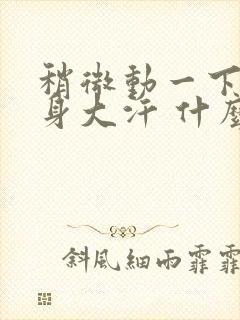 稍微動一下
身大汗 什麼
斜風細雨霏霏